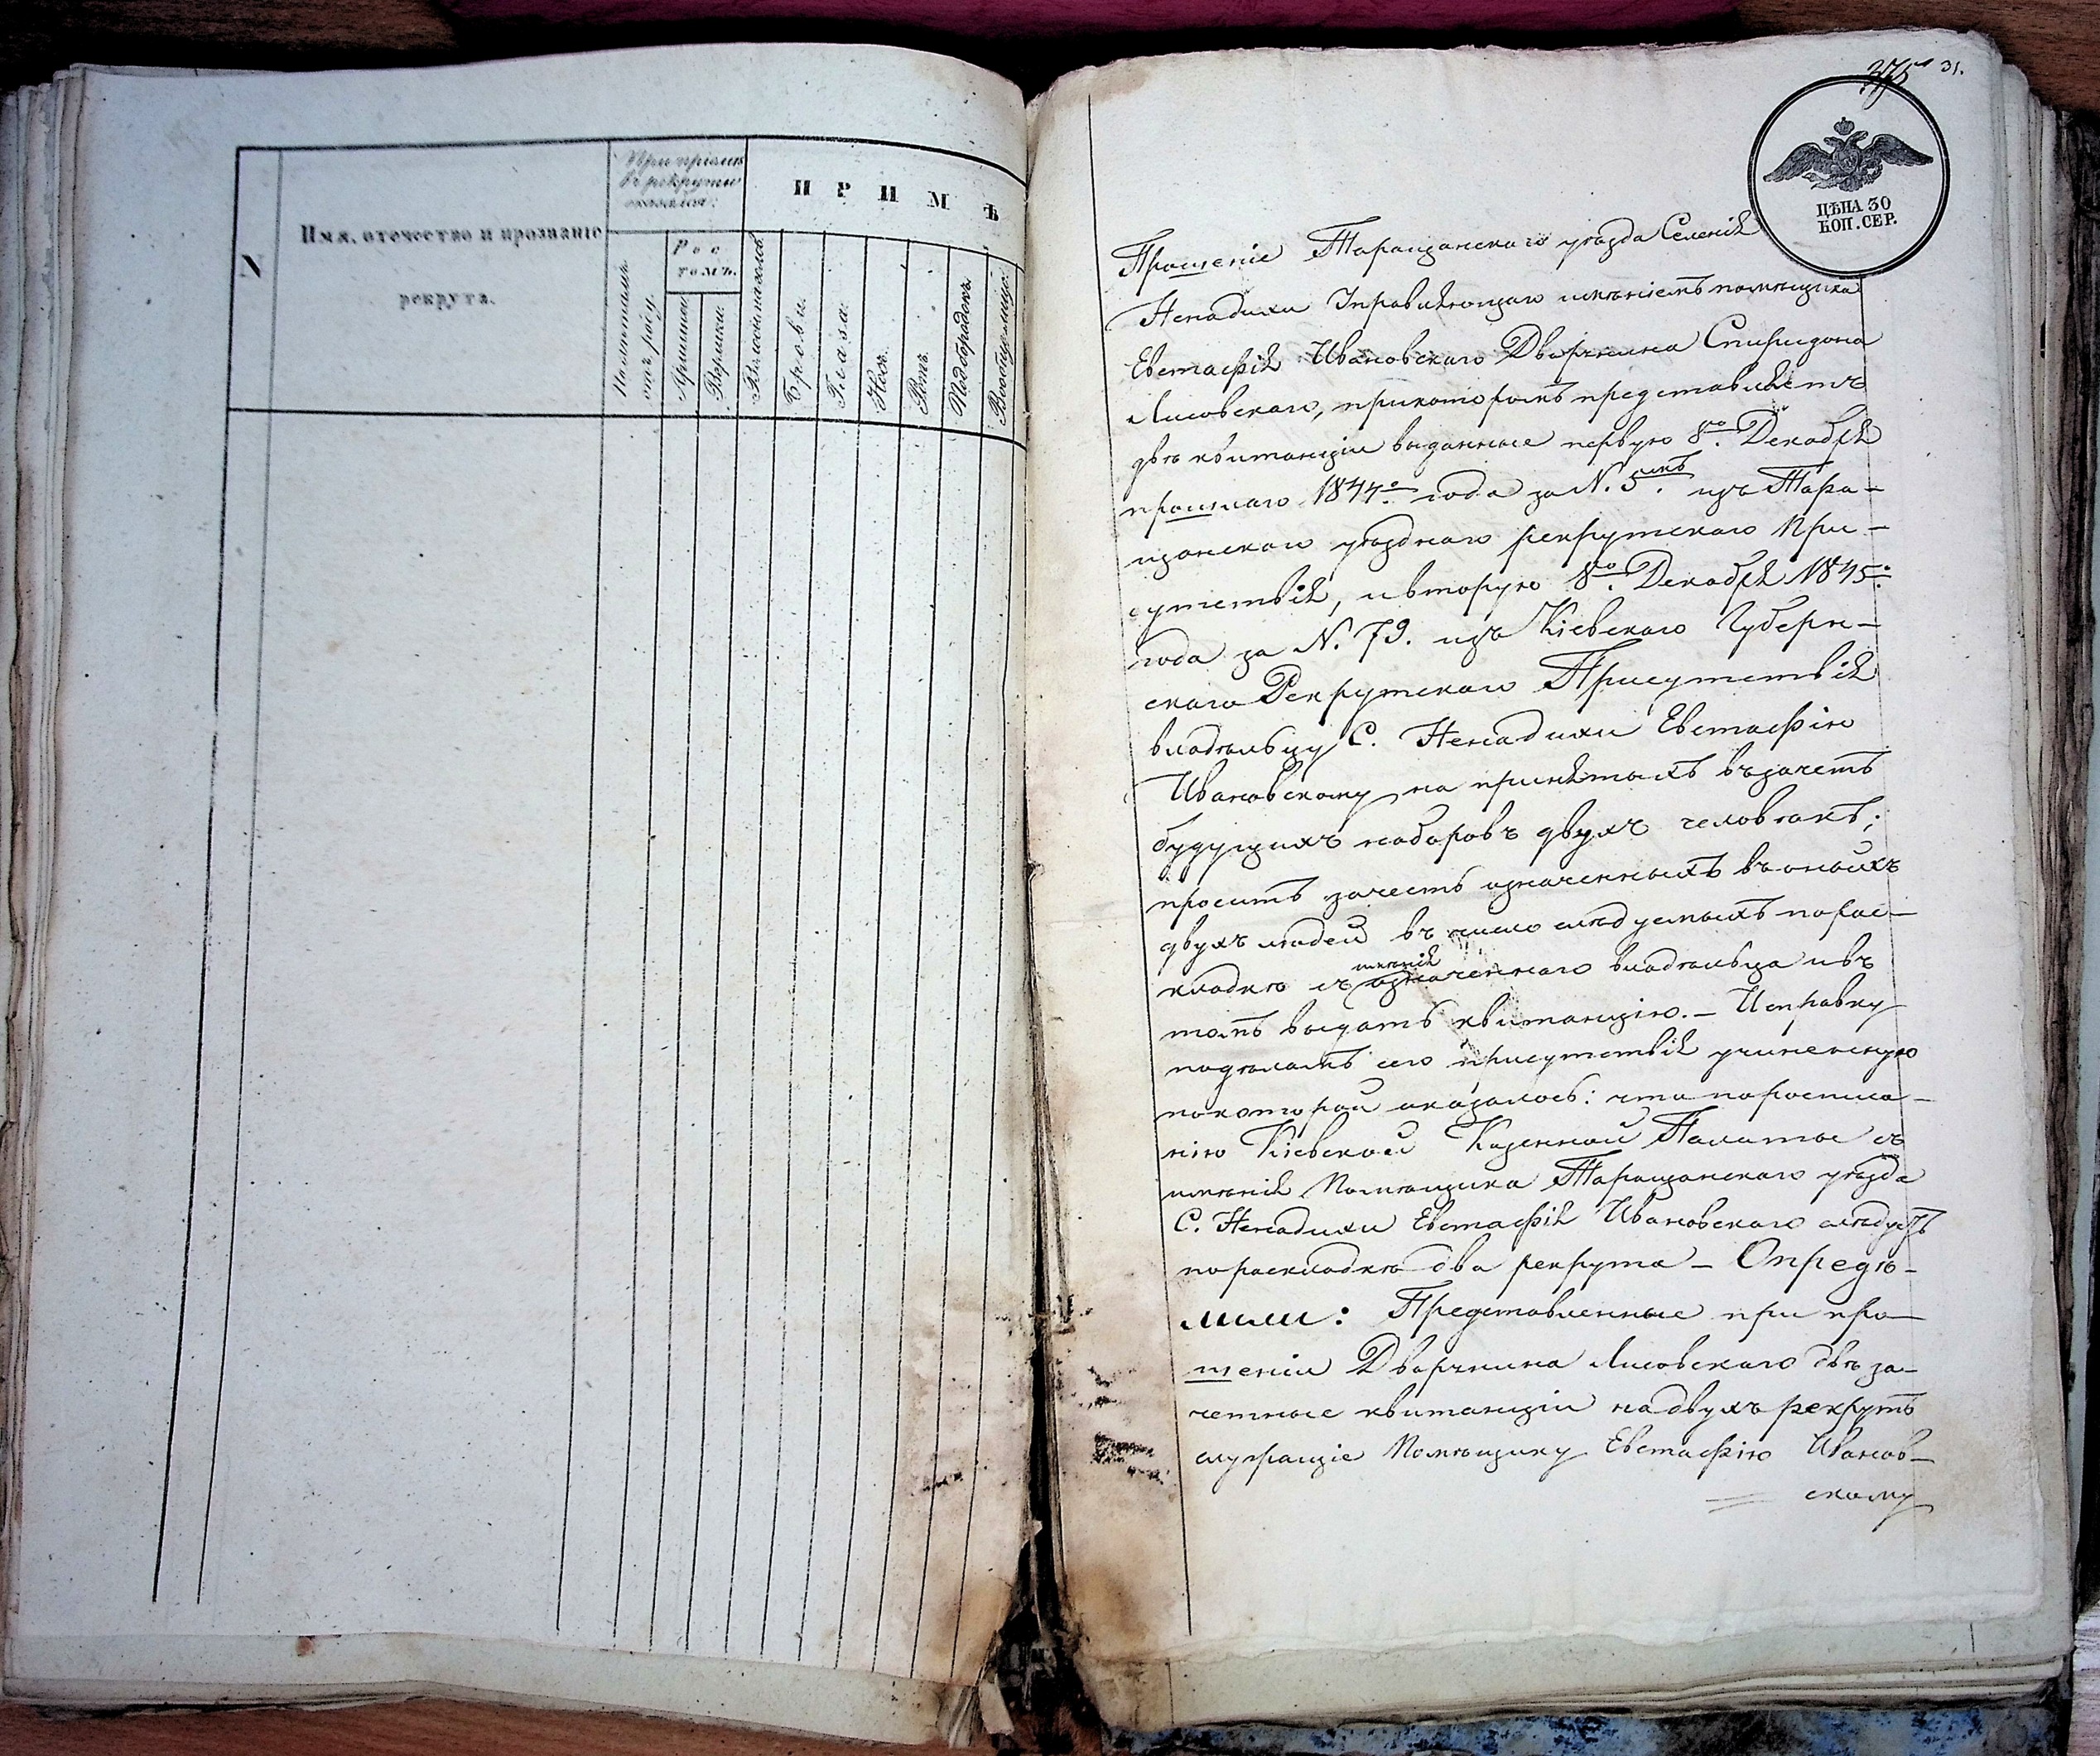 N
Имя, отечество и прозваніе
рекрута.
При приемѣ
въ рекруты
Ростомъ.
Аршины
Вершки
ПРИМѢ
Брови.
Глаза.
Носъ.
Ротъ.
Подбородокъ.
Вообще лице.
375
31.
ЦѢНА 30
КОП. СЕР.
Прошеніе Таращанскаго уѣзда Селенія
Ненадихи Управляющаго имѣніемъ помѣщика
Евстафія Ивановскаго Дворянина Спиридона
Лисовскаго, при которомъ представляетъ
двѣ квитанціи выданные первую 8го. Декабря
прошлаго 1844го года за N. 5.мъ изъ Тара-
щанскаго уѣзднаго рекрутскаго При-
сутствія, и вторую 8го. Декабря 1845го:
года за N. 79. изъ Кіевскаго Губерн-
скаго Рекрутскаго Присутствія
владѣльцу С. Ненадихи Евстафію
Ивановскому на принятыхъ въ зачетъ
будущихъ наборовъ двухъ человѣкъ;
проситъ зачесть означенныхъ въ оныхъ
двухъ людей въ число слѣдуемыхъ по рас-
имѣнія
кладкѣ съ означеннаго владѣльца и въ
томъ выдать квитанцію. – И справку
по дѣламъ сего присутствія учиненную
по которой оказалось: что по росписа-
нію Кіевской Казенной Палаты съ
имѣнія Помѣщика Таращанскаго уѣзда
С. Ненадихи Евстафія Ивановскаго слѣдуетъ
по раскладкѣ два рекрута – Опредѣ-
лили: Представленные при про-
шеніи Дворянина Лисовскаго двѣ за-
четные квитанціи на двухъ рекрутъ
служащіе Помѣщику Евстафію Иванов-
скому